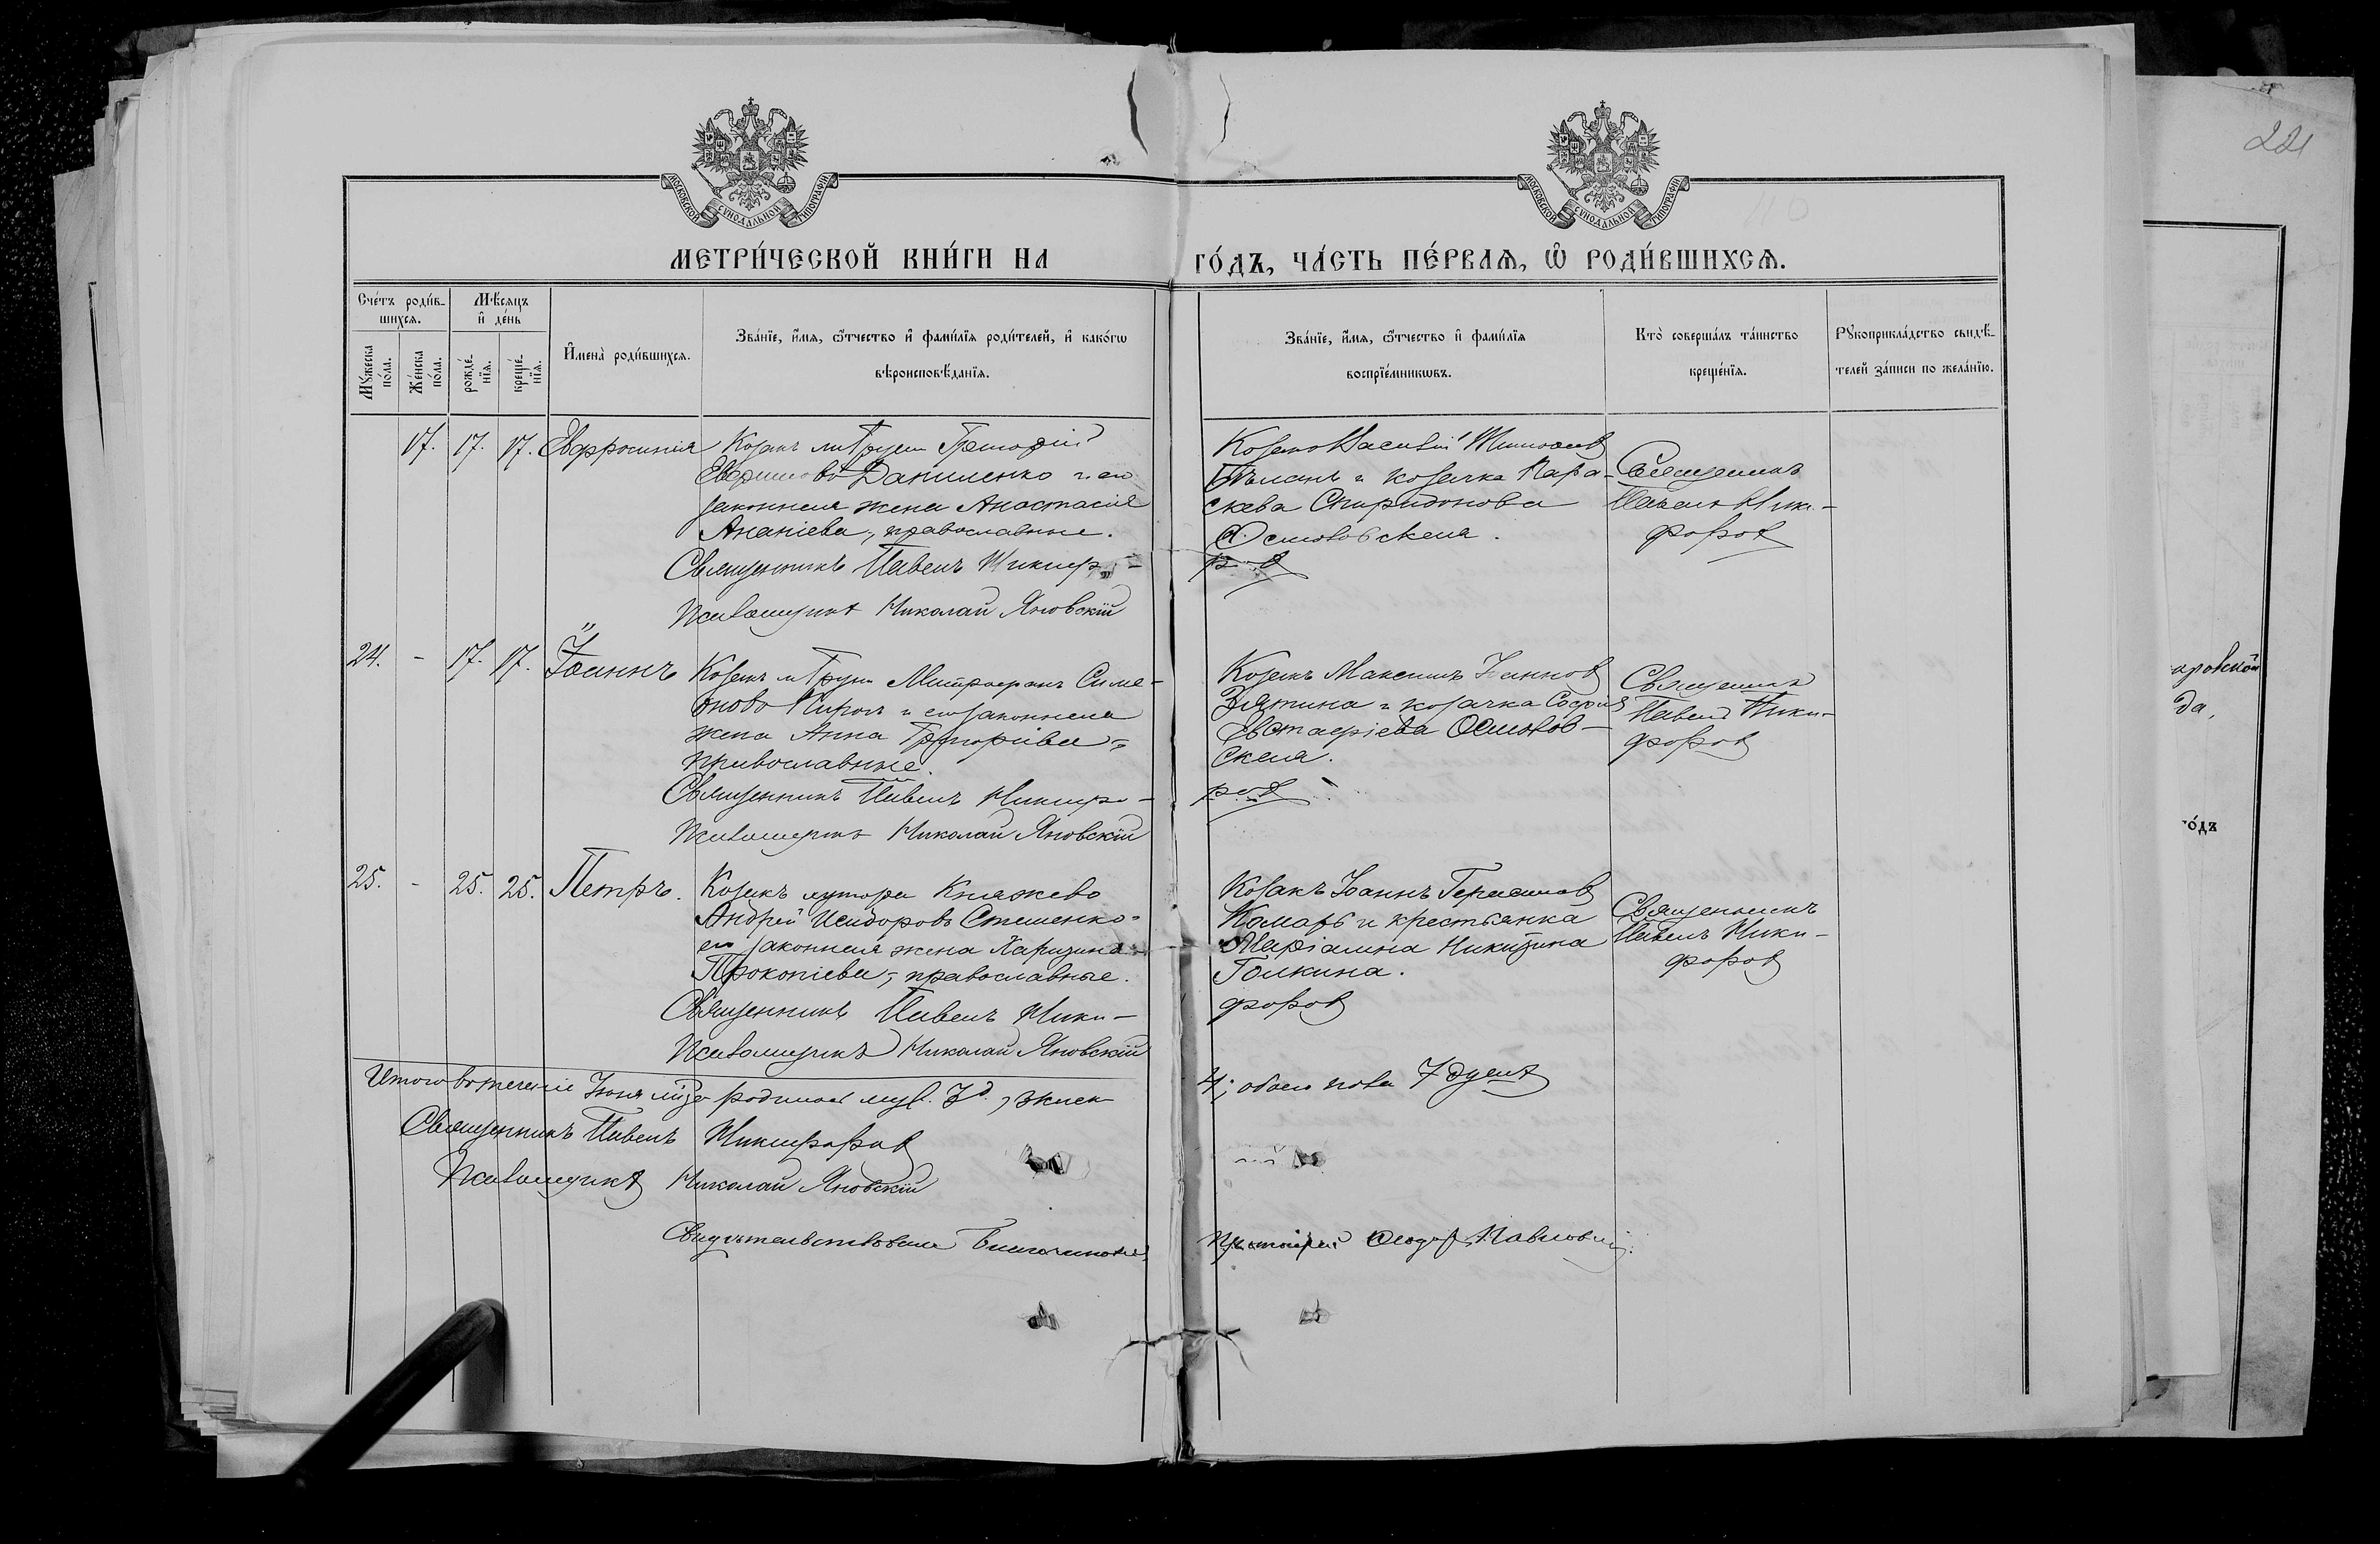 221
МОСКОВСКОЙ СѴНОДАЛЬНОЙ ТИПОГРАФІИ
МОСКОВСКОЙ СѴНОДАЛЬНОЙ ТИПОГРАФІИ
МЕТРИ́ЧЕСКОЙ КНИ́ГИ НА ГО́ДЪ, ЧА́СТЬ ПЕ́РВАѦ, Ѿ РОДИ́ВШИХСѦ.
Сче́тъ роди́в-
шихсѧ.
Мꙋ́жеска по́ла.
Же́нска по́ла.
Мѣ́сѧцъ
и҆ де́нь
рожде́-
нїѧ.
креще́-
нїѧ.
И҆мена̀ роди́вшихсѧ.
Зва́нїе, и҆́мѧ, ѻ҆́тчество и҆ фами́лїѧ роди́телей, и҆ како́гѡ
вѣроисповѣ́данїѧ.
Зва́нїе, и҆́мѧ, ѻ҆́тчество и҆ фами́лїѧ
воспрїе́мникѡвъ.
Кто̀ соверша́лъ та́инство
креще́нїѧ.
Рꙋкоприкла́дство свидѣ́-
телей за́писи по жела́нїю.
17. 17. 17. Евфросинія
Козакъ м. Груни Григорій
Евфимовъ Даниленко и его
законная жена Анастасія
Ананіева, православные.
Священникъ Павелъ Никифо-
ровъ
Псаломщикъ Николай Яновскій
Козакъ Василій
и козачка Пара-
скева Спиридонова
Осмоловская.
Священникъ
Павелъ Ники-
форовъ
24. - 17. 17. Іоаннъ
Козакъ м. Груни Митрофанъ Симе-
оновъ и его законная
жена Анна Григоріева,
православные.
Священникъ Павелъ Никифо-
ровъ
Псаломщикъ Николай Яновскій
Козакъ Максимъ Іоанновъ
и козачка Софія
Евстафіева Осмолов-
ская.
Священникъ
Павелъ Ники-
форовъ
25. - 25. 25. Петръ.
Козакъ хутора Княжево
Андрей Исидоровъ Стешенко и
его законная жена Харитина
Прокопіева, православные.
Священникъ Павелъ Ники-
форовъ
Псаломщикъ Николай Яновскій
Козакъ Іоаннъ Герасимовъ
Комаръ и крестьянка
Маріамна Никитина
Голкина.
Священникъ
Павелъ Ники-
форовъ
Итого въ теченіи Іюня м-ца родилось муж. 3, женск. 4; обоего пола 7 душъ
Священникъ Павелъ Никифоровъ
Псаломщикъ Николай Яновскій
Свидѣтельствовалъ Благочинный Протоіерей Ѳеодоръ Павловскій.
го́дъ